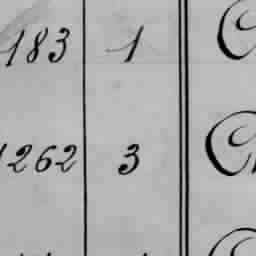 183 1
1262 3